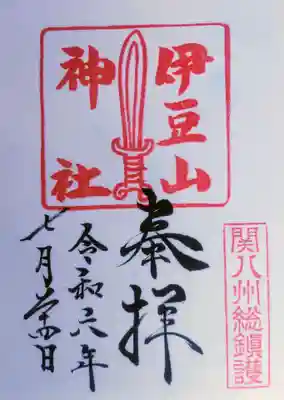 伊豆山
神社
奉拝
関八州総鎭護
令和六年
七月廿四日